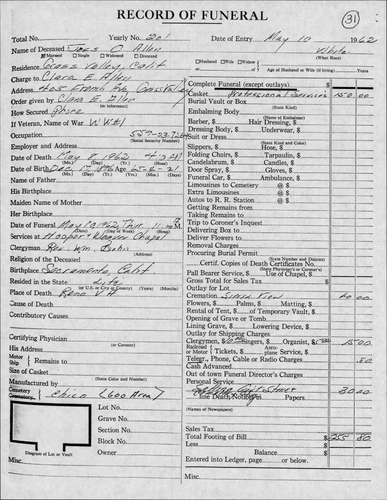 RECORD OF FUNERAL
31
Total No. Yearly No. 201 Date of Entry May 10 1962
Name of Deceased O Allen White
Married Single Widowed Divorced (What Race)
Residence Grass Valley, Calif Age of Husband or Wife (if living)
Charge to Clara E Allen
Address 405 French Ave Grass Valley
Order given by Clara E Allen
How Secured Phone
If Veteran, Name of War WW#1
Occupation
(Social Security Number)
Employer and Address
Date of Death May 8 1962
Date of Birth
Name of Father
His Birthplace
Maiden Name of Mother
Her Birthplace
Date of Funeral May 10 1962 Thur 11
Services at Hooper-Weaver Chapel
Clergyman Rev Wm
Religion of the Deceased
Birthplace Sacramento, Calif
Resided in the State
Place of Death Reno VA
Cause of Death
Contributory Causes
Certifying Physician
His Address (or Coroner)
Motor
Ship Remains to
Size of Casket
(State Color and Number)
Manufactured by
Cemetery
Lot No.
Grave No.
Section No.
Block No.
Owner
Diagram of Lot or Vault
Misc.
Complete Funeral (except outlays) $
Casket Professional Service 150.00
Burial Vault or Box
(State Kind)
Embalming Body
(Name of Embalmer)
Barber, $ Hair Dressing, $
Dressing Body, $ Underwear, $
Suit or Dress
(State Kind and Color)
Slippers, $ Hose, $
Folding Chairs, $ Tarpaulin, $
Candelabrum, $ Candles, $
Door Spray, $ Gloves, $
Funeral Car, $ Ambulance, $
Limousines to Cemetery @ $
Extra Limousines @ $
Autos to R. R. Station @ $
Getting Remains from
Taking Remains to
Trip to Coroner's Inquest
Delivering Box to
Deliver Flowers to
Removal Charges
Procuring Burial Permit
(State Number and District)
Certif. Copies of Death Certificates No.
(State Physician's or Coroner's)
Pall Bearer Service, $ Use of Chapel, $
Gross Total for Sales Tax $
Outlay for Lot
Cremation Sierra View
Flowers, $ Palms, $ Matting, $
Rental of Tent, $ of Temporary Vault, $
Opening of Grave or Tomb
Lining Grave, $ Lowering Device, $
Outlay for Shipping Charges
Clergymen, $ Singers, $ Organist, $ 15.00
Railroad
or Motor Tickets, $ Aeroplane Service, $
Telegr., Phone, Cable or Radio Charges .80
Cash Advanced
Out of town Funeral Director's Charges
Personal Service
30.00
Line Death Notices in Papers
(Names of Newspapers)
Sales Tax
Total Footing of Bill $ 255 80
Entered into Ledger, page or below.
Misc.